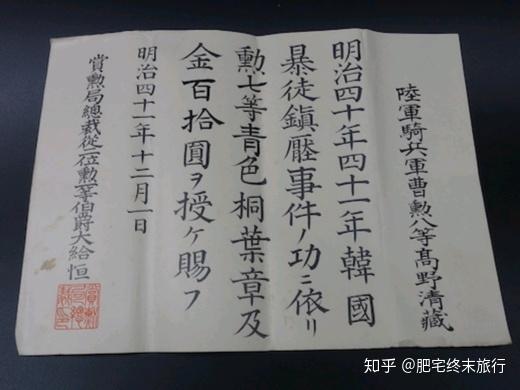 陸軍騎兵軍曹勲八等髙野清藏
明治四十年四十一年韓國
暴徒鎮壓事件ノ功ニ依リ
勲七等青色桐葉章及
金百拾圓ヲ授ケ賜フ
明治四十一年十二月一日
賞勲局總裁從二位勲一等伯爵大給恒
知乎 @肥宅终末旅行